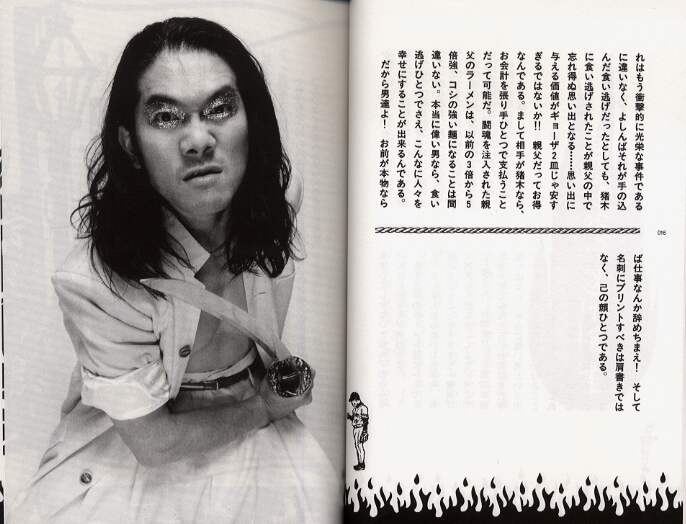 れはもう衝撃的に光栄な事件である
に違いなく、よしんばそれが手の込
んだ食い逃げだったとしても、猪木
に食い逃げされたことが親父の中で
忘れ得ぬ思い出となる……思い出に
与える価値がギョーザ2皿じゃ安す
ぎるではないか!! 親父だってお得
なんである。まして相手が猪木なら、
お会計を張り手ひとつで支払うこと
だって可能だ。闘魂を注入された親
父のラーメンは、以前の3倍から5
倍強、コシの強い麺になることは間
違いない。本当に偉い男なら、食い
逃げひとつでさえ、こんなに人々を
幸せにすることが出来るんである。
だから男達よ! お前が本物なら
016
ば仕事なんか辞めちまえ! そして
名刺にプリントすべきは肩書きでは
なく、己の顔ひとつである。